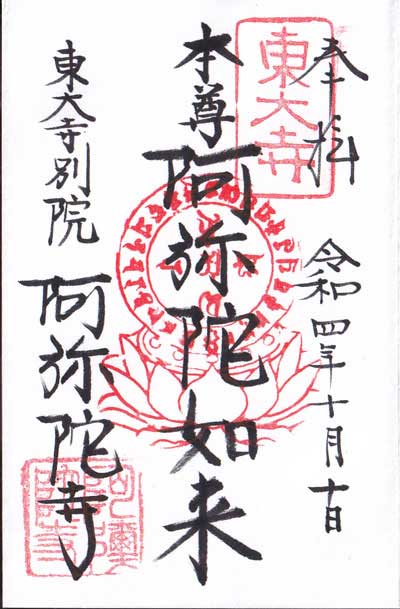 奉拝
令和四年十月十日
東大寺
本尊
阿弥陀如来
東大寺別院
阿弥陀寺